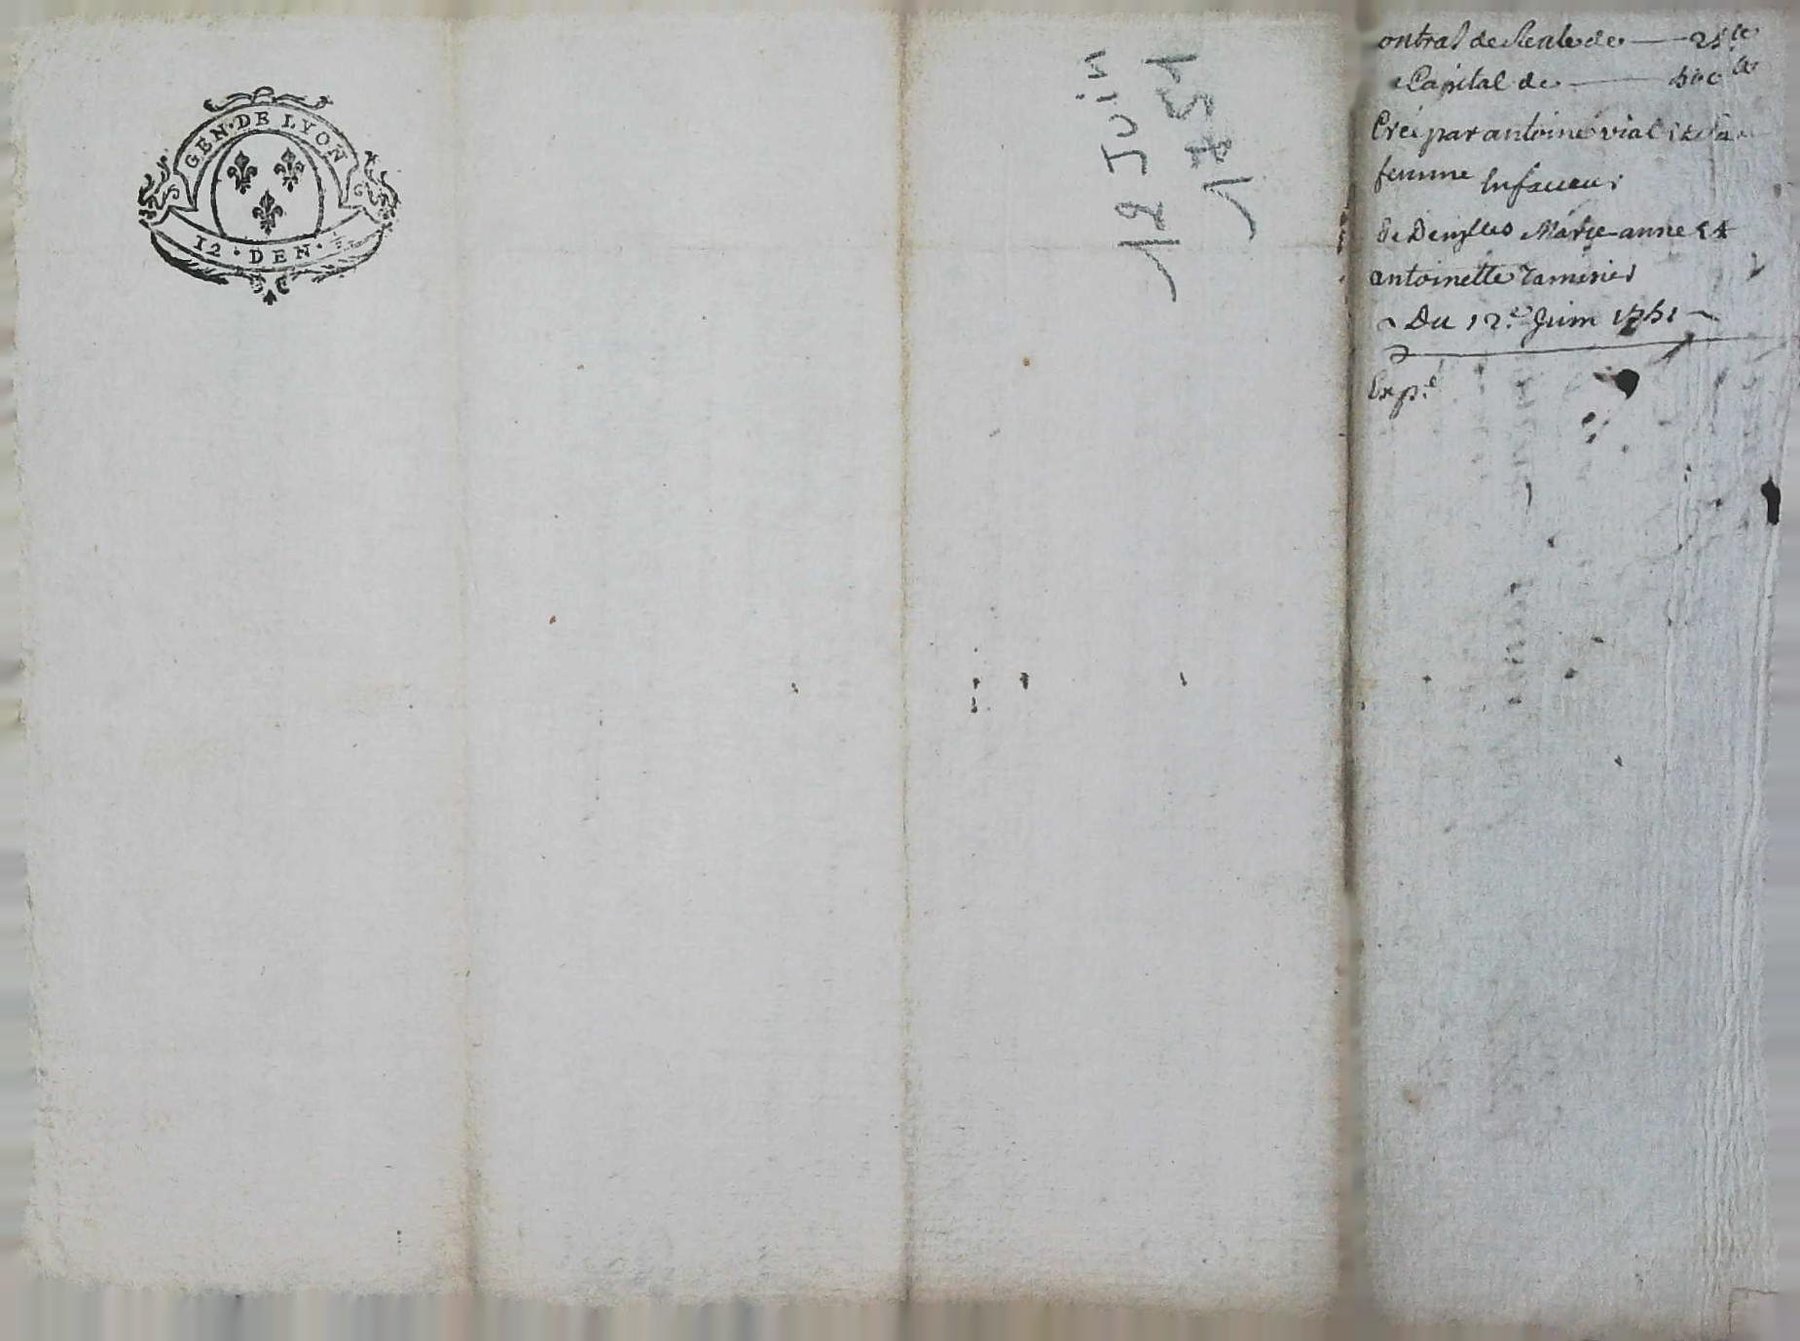 GEN · DE LYON
12 · DEN ·
12 Juin
1751
ontrat de Rente de — 25 lt
Capital de — 500 lt
Créé par antoine vial et sa
femme En faveur
de Denylles Marie-anne et
antoinette
Du 12.e Juin 1751
Exp.é